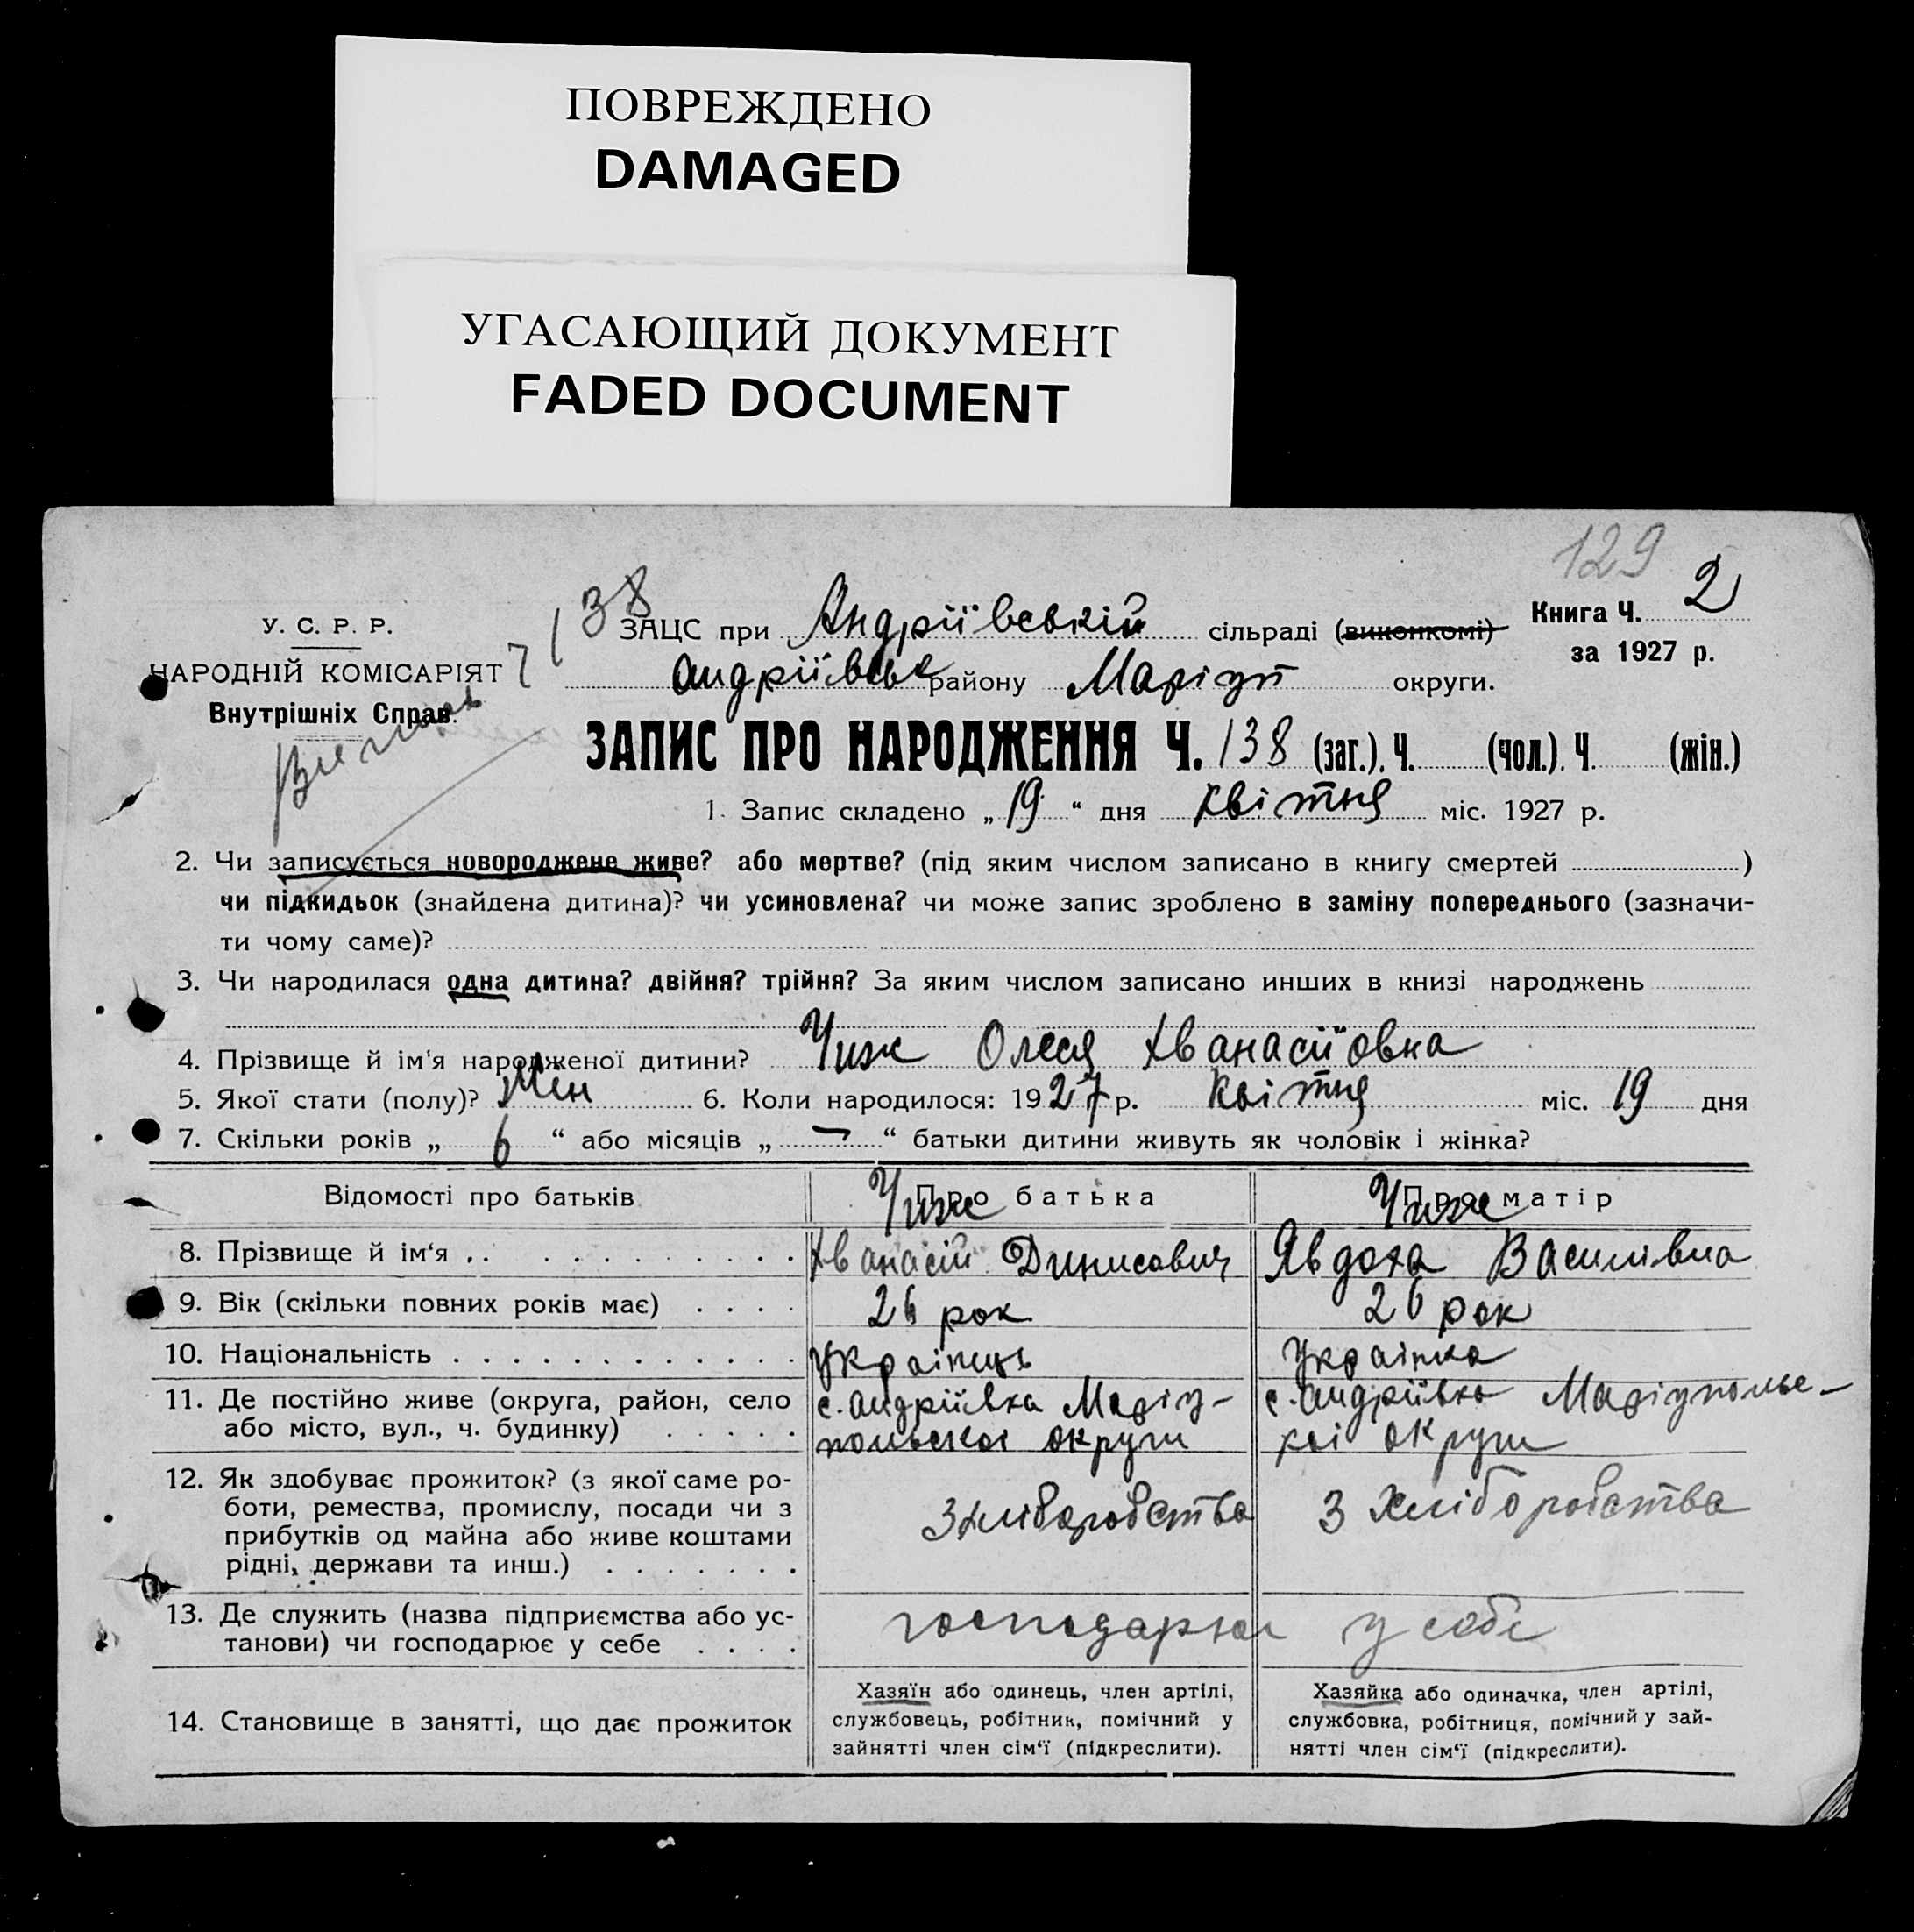 ПОВРЕЖДЕНО
DAMAGED
УГАСАЮЩИЙ ДОКУМЕНТ
FADED DOCUMENT
129
2
138
У. С. Р. Р.
НАРОДНІЙ КОМІСАРІЯТ
Внутрішніх Справ.
ЗАЦС при Андріївській сільраді (виконкомі)
Книга Ч.
за 1927 р.
Андріївськ району Маріуп округи.
ЗАПИС ПРО НАРОДЖЕННЯ Ч. 138 (заг.). Ч. (чол.). Ч. (жін.)
1. Запис складено „ 19 “ дня квітня міс. 1927 р.
2. Чи записується новороджене живе? або мертве? (під яким числом записано в книгу смертей )
чи підкидьок (знайдена дитина)? чи усиновлена? чи може запис зроблено в заміну попереднього (зазначи-
ти чому саме)?
3. Чи народилася одна дитина? двійня? трійня? За яким числом записано инших в книзі народжень
4. Прізвище й ім'я народженої дитини? Чиж Олеся Хванасіївна
5. Якої стати (полу)? Жін 6. Коли народилося: 1927 р. Квітня міс. 19 дня
7. Скільки років „ 6 “ або місяців „ — “ батьки дитини живуть як чоловік і жінка?
Відомості про батьків Про батька Про матір
Чиж Чиж
8. Прізвище й ім'я . . Хванасій Динисович Явдоха Василівна
9. Вік (скільки повних років має) . . . . 26 рок 26 рок
10. Національність . . . . українець Українка
11. Де постійно живе (округа, район, село
або місто, вул., ч. будинку) . . . . .
с. Андріївка Маріу-
польскоі округи
с. Андріївка Маріупольс-
коі округи
12. Як здобуває прожиток? (з якої саме ро-
боти, ремества, промислу, посади чи з
прибутків од майна або живе коштами
рідні, держави та инш.) . . . . . . .
З хліборобства З хліборобства
13. Де служить (назва підприємства або ус-
танови) чи господарює у себе . . . .
господарює у себе
14. Становище в занятті, що дає прожиток
Хазяїн або одинець, член артілі,
службовець, робітник, помічний у
зайнятті член сім'ї (підкреслити).
Хазяйка або одиначка, член артілі,
службовка, робітниця, помічний у зай-
нятті член сім'ї (підкреслити).